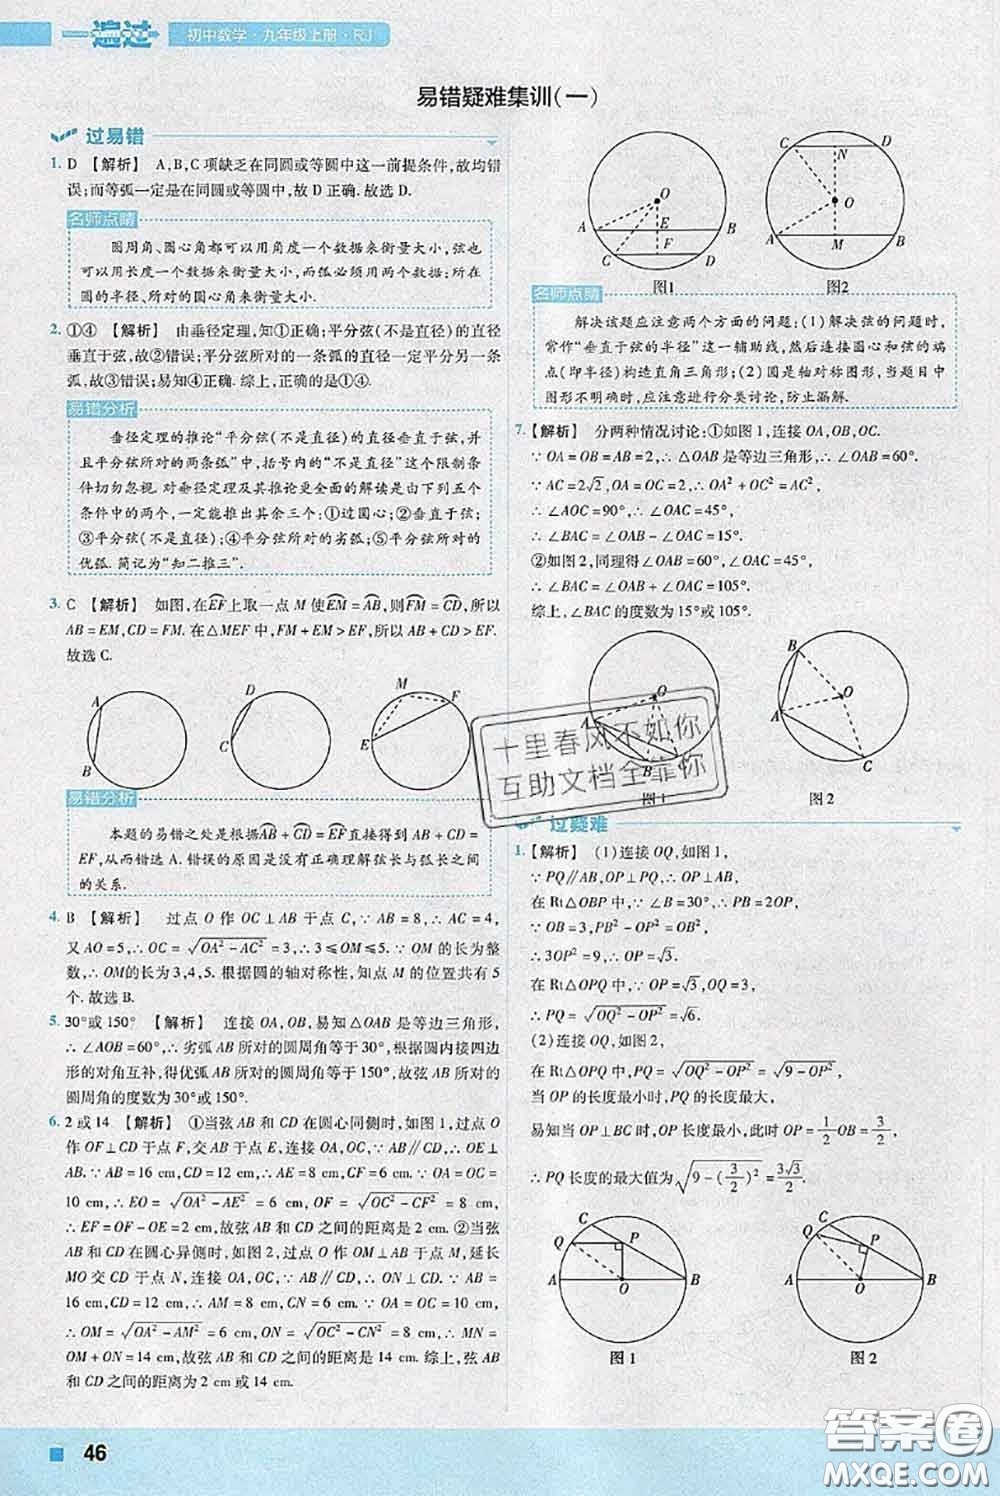 一遍过
初中数学·九年级上册·RJ
易错疑难集训(一)
过易错
1. D 【解析】 A,B,C项缺乏在同圆或等圆中这一前提条件,故均错
误;而等弧一定是在同圆或等圆中,故D正确.故选D.
名师点睛
圆周角、圆心角都可以用角度一个数据来衡量大小,弦也
可以用长度一个数据来衡量大小,而弧必须用两个数据;所在
圆的半径、所对的圆心角来衡量大小.
2. ①④ 【解析】 由垂径定理,知①正确;平分弦(不是直径)的直径
垂直于弦,故②错误;平分弦所对的一条弧的直径一定平分另一条
弧,故③错误;易知④正确.综上,正确的是①④.
易错分析
垂径定理的推论“平分弦(不是直径)的直径垂直于弦,并
且平分弦所对的两条弧”中,括号内的“不是直径”这个限制条
件切勿忽视.对垂径定理及其推论更全面的解读是由下列五个
条件中的两个,一定能推出其余三个:①过圆心;②垂直于弦;
③平分弦(不是直径);④平分弦所对的劣弧;⑤平分弦所对的
优弧.简记为“知二推三”.
3. C 【解析】 如图,在EF上取一点M使EM=AB,则FM=CD,所以
AB=EM,CD=FM.在△MEF中,FM+EM>EF,所以AB+CD>EF.
故选C.
A
B
D
C
M
F
E
易错分析
本题的易错之处是根据AB+CD=EF直接得到AB+CD=
EF,从而错选A.错误的原因是没有正确理解弦长与弧长之间
的关系.
4. B 【解析】 过点O作OC⊥AB于点C,∵AB=8,∴AC=4,
又AO=5,∴OC=√(OA²-AC²)=3,∴3≤OM≤5.∵OM的长为整
数,∴OM的长为3,4,5.根据圆的轴对称性,知点M的位置共有5
个.故选B.
5. 30°或150° 【解析】 连接OA,OB,易知△OAB是等边三角形,
∴∠AOB=60°,∴劣弧AB所对的圆周角等于30°,根据圆内接四边
形的对角互补,得优弧AB所对的圆周角等于150°,故弦AB所对
的圆周角的度数为30°或150°.
6. 2或14 【解析】 ①当弦AB和CD在圆心同侧时,如图1,过点O
作OF⊥CD于点F,交AB于点E,连接OA,OC,∴OE⊥AB.
∵AB=16 cm,CD=12 cm,∴AE=8 cm,CF=6 cm.∵OA=OC=
10 cm,∴EO=√(OA²-AE²)=6 cm,OF=√(OC²-CF²)=8 cm,
∴EF=OF-OE=2 cm,故弦AB和CD之间的距离是2 cm.②当弦
AB和CD在圆心异侧时,如图2,过点O作OM⊥AB于点M,延长
MO交CD于点N,连接OA,OC,∵AB∥CD,∴ON⊥CD.∵AB=
16 cm,CD=12 cm,∴AM=8 cm,CN=6 cm.∵OA=OC=10 cm,
∴OM=√(OA²-AM²)=6 cm,ON=√(OC²-CN²)=8 cm,∴MN=
OM+ON=14 cm,故弦AB和CD之间的距离是14 cm.综上,弦
AB和CD之间的距离为2 cm或14 cm.
46
O
A
E
B
C
F
D
图1
C
N
D
O
A
M
B
图2
名师点睛
解决该题应注意两个方面的问题:(1)解决弦的问题时,
常作“垂直于弦的半径”这一辅助线,然后连接圆心和弦的端
点(即半径)构造直角三角形;(2)圆是轴对称图形,当题目中
图形不明确时,应注意进行分类讨论,防止漏解.
7. 【解析】 分两种情况讨论:①如图1,连接OA,OB,OC.
∵OA=OB=AB=2,∴△OAB是等边三角形,∴∠OAB=60°.
∵AC=2√2,OA=OC=2,∴OA²+OC²=AC²,
∴∠AOC=90°,∴∠OAC=45°,
∴∠BAC=∠OAB-∠OAC=15°.
②如图2,同理得∠OAB=60°,∠OAC=45°,
∴∠BAC=∠OAC+∠OAB=105°.
综上,∠BAC的度数为15°或105°.
O
A
B
C
图1
B
O
A
C
图2
十里春风不如你
互助文档全靠你
过疑难
1. 【解析】 (1)连接OQ,如图1,
∵PQ∥AB,OP⊥PQ,∴OP⊥AB,
在Rt△OBP中,∵∠B=30°,∴PB=2OP.
∵OB=3,PB²-OP²=OB²,
∴3OP²=9,∴OP=√3.
在Rt△OPQ中,∵OP=√3,OQ=3,
∴PQ=√(OQ²-OP²)=√6.
(2)连接OQ,如图2,
在Rt△OPQ中,PQ=√(OQ²-OP²)=√(9-OP²),
当OP的长度最小时,PQ的长度最大,
易知当OP⊥BC时,OP长度最小,此时OP=1/2OB=3/2,
∴PQ长度的最大值为√(9-(3/2)²)=3√3/2.
C
Q
P
A
O
B
图1
C
Q
P
A
O
B
图2
答案圈
MXQE.COM